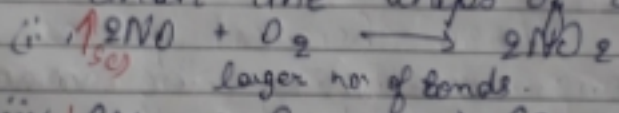 (i. 2NO + O2 ⟶ 2NO2
5(1)
larger no. of bonds.